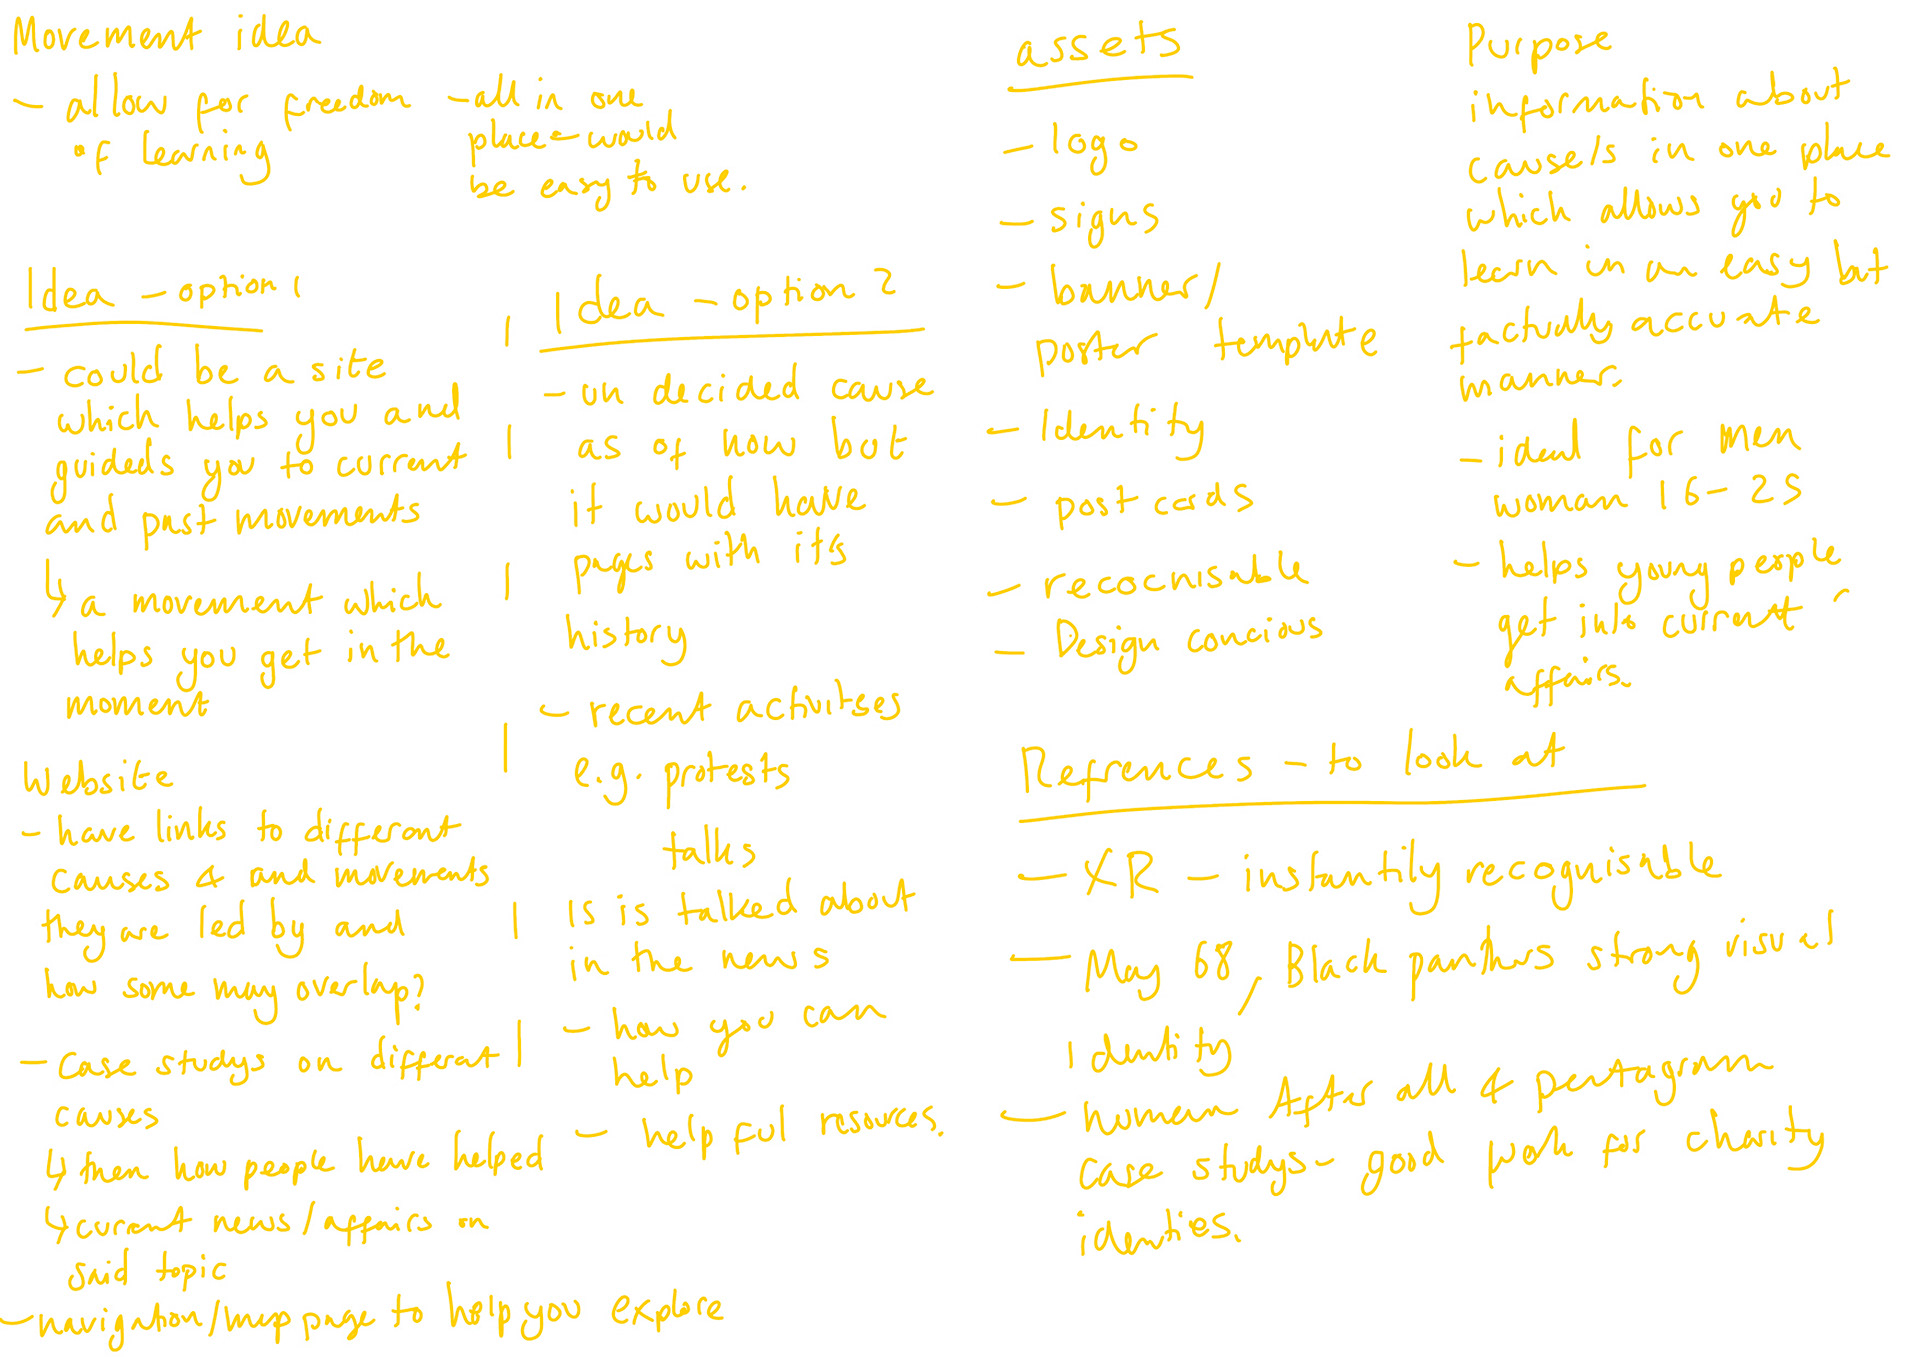 Movement idea
- allow for freedom
of learning
- all in one
place - would
be easy to use.
Idea - option 1
- could be a site
which helps you and
guideds you to current
and past movements
↳ a movement which
helps you get in the
moment
Website
- have links to different
causes & and movements
they are led by and
how some may overlap?
- Case studys on different
causes
↳ then how people have helped
↳ current news/affairs on
said topic
- navigation/map page to help you explore
Idea - option 2
- un decided cause
as of now but
it would have
pages with it's
history
- recent activitses
e.g. protests
talks
Is is talked about
in the news
- how you can
help
- helpful resources.
assets
- logo
- signs
- banner/
poster template
- Identity
- post cards
- recocnisable
- Design concious
Purpose
information about
cause/s in one place
which allows you to
learn in an easy but
factually accurate
manner.
- ideal for men
woman 16-25
- helps young people
get into current
affairs.
Refrences - to look at
- XR - instantily recognisable
- May 68, Black panthers strong visual
Identity
- human After all & pentagram
case studys - good work for charity
identies.